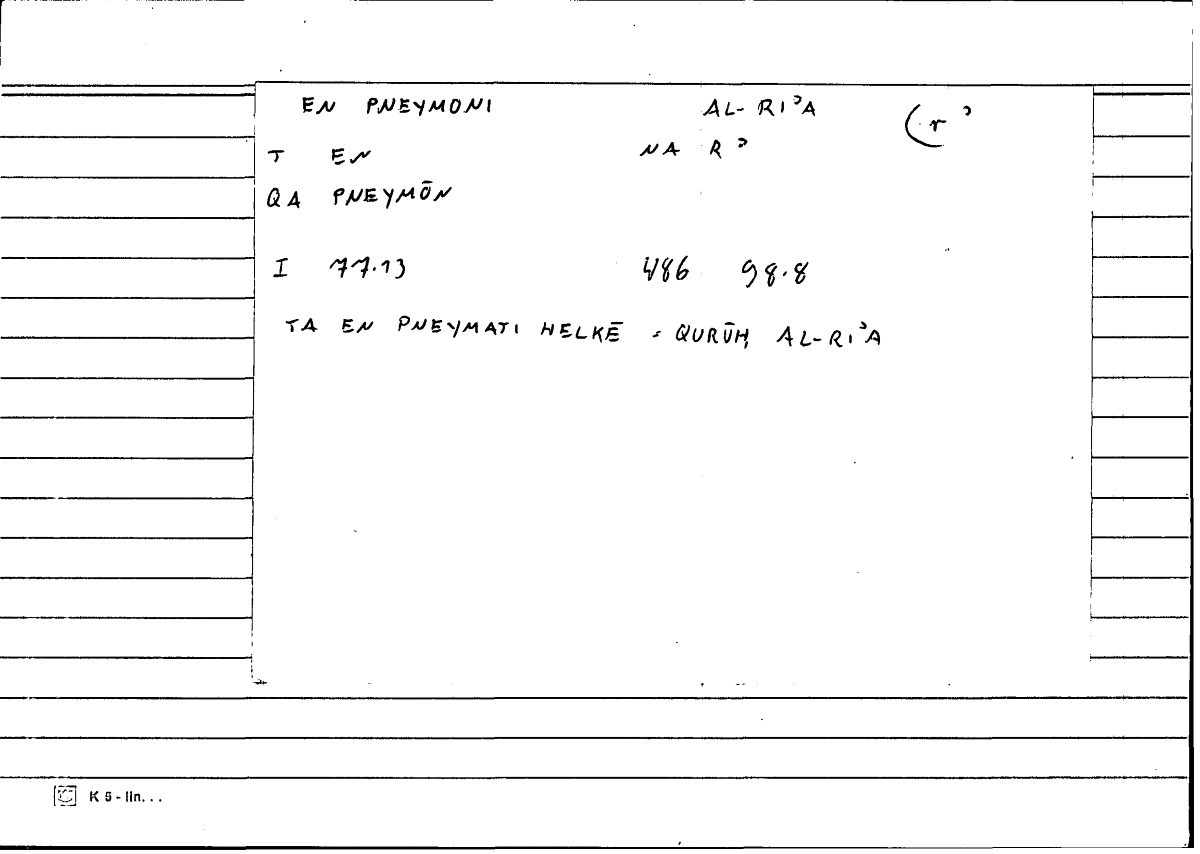 EN PNEYMONI AL-RIʾA (r ʾ
T EN NA R ʾ
QA PNEYMŌN
I 77.13 486 98.8
TA EN PNEYMATI HELKĒ = QURŪḤ AL-RIʾA
K 5 - lin. . .